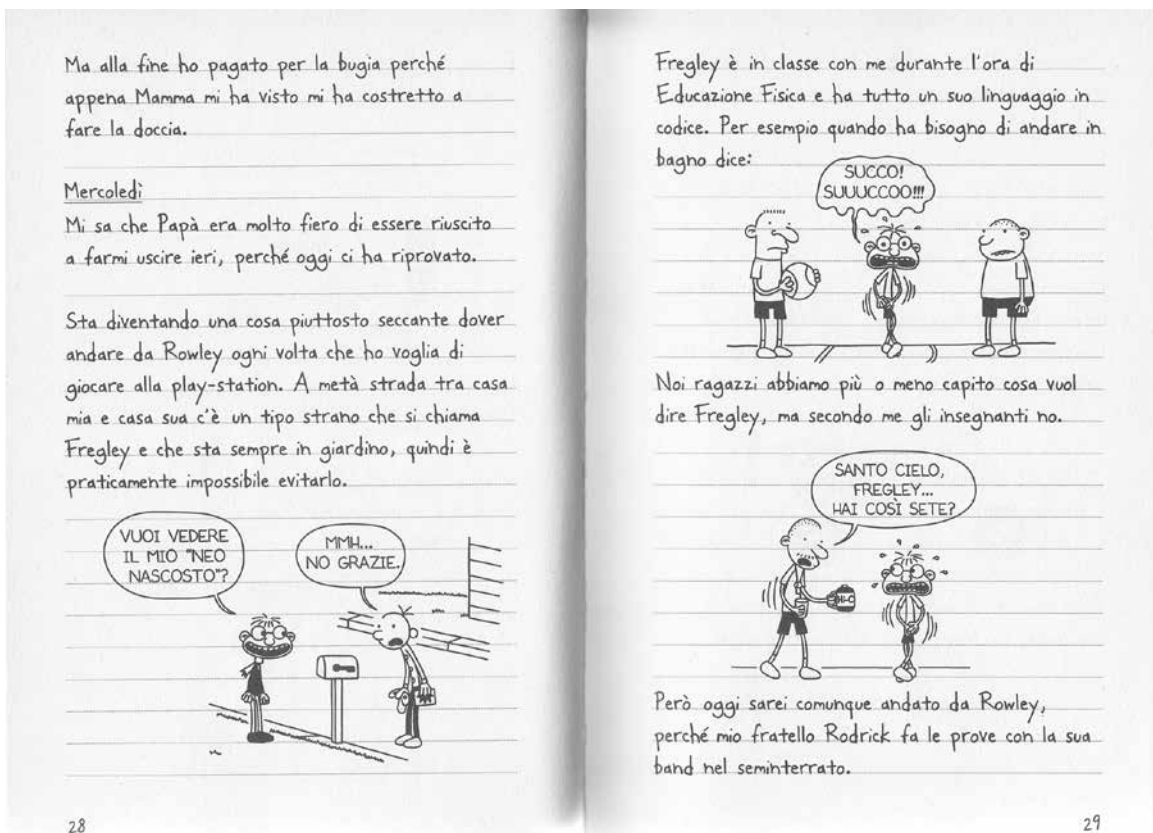 Ma alla fine ho pagato per la bugia perché
appena Mamma mi ha visto mi ha costretto a
fare la doccia.
Mercoledì
Mi sa che Papà era molto fiero di essere riuscito
a farmi uscire ieri, perché oggi ci ha riprovato.
Sta diventando una cosa piuttosto seccante dover
andare da Rowley ogni volta che ho voglia di
giocare alla play-station. A metà strada tra casa
mia e casa sua c'è un tipo strano che si chiama
Fregley e che sta sempre in giardino, quindi è
praticamente impossibile evitarlo.
VUOI VEDERE
IL MIO "NEO
NASCOSTO"?
MMH...
NO GRAZIE.
28
Fregley è in classe con me durante l'ora di
Educazione Fisica e ha tutto un suo linguaggio in
codice. Per esempio quando ha bisogno di andare in
bagno dice:
SUCCO!
SUUUCCOO!!!
Noi ragazzi abbiamo più o meno capito cosa vuol
dire Fregley, ma secondo me gli insegnanti no.
SANTO CIELO,
FREGLEY...
HAI COSÌ SETE?
HI-C
Però oggi sarei comunque andato da Rowley,
perché mio fratello Rodrick fa le prove con la sua
band nel seminterrato.
29